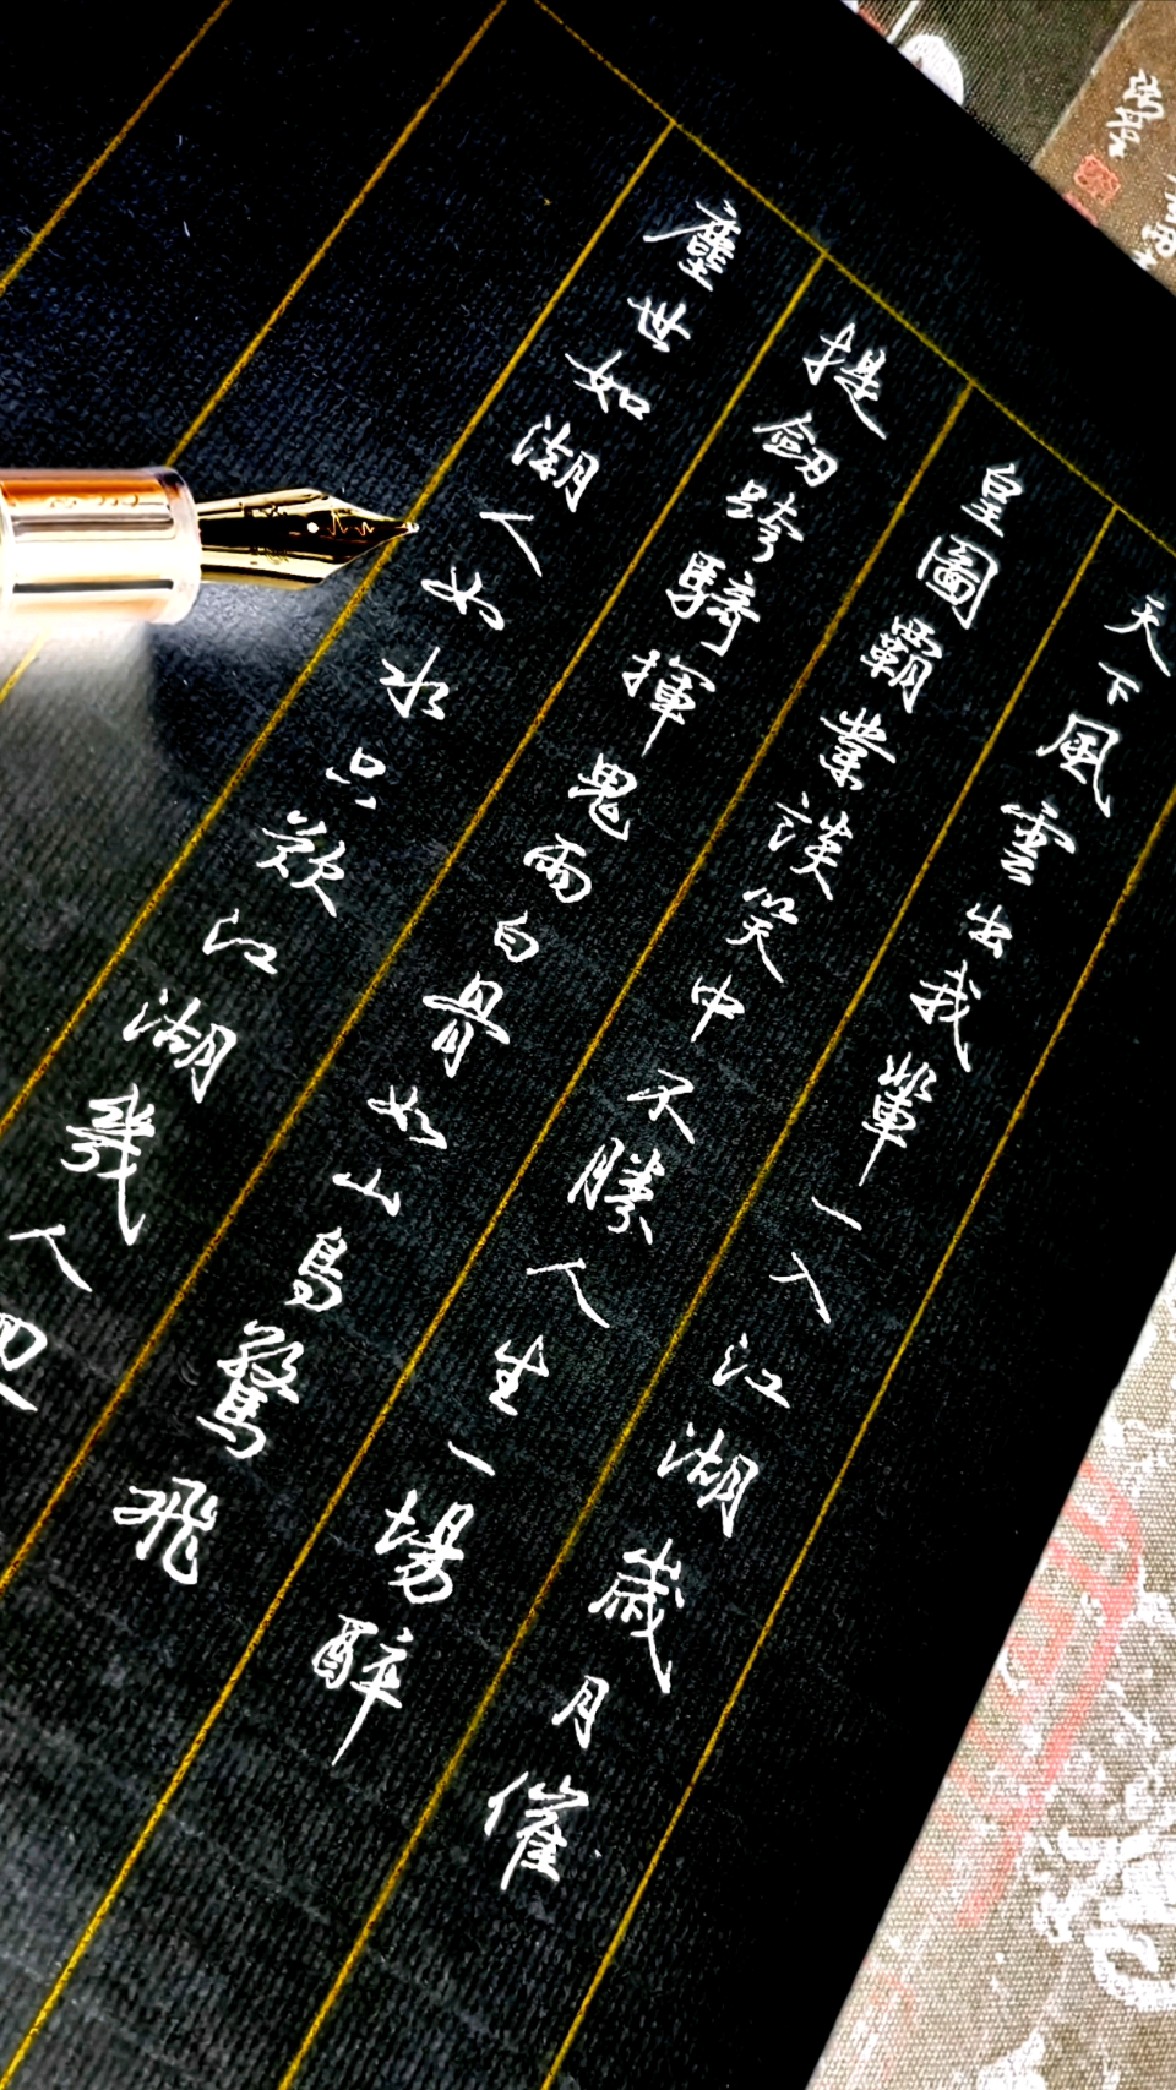 天下風雲出我輩一入江湖歲月催
皇圖霸業談笑中不勝人生一場醉
提劔跨騎揮鬼雨白骨如山鳥驚飛
塵世如潮人如水只歎江湖幾人回